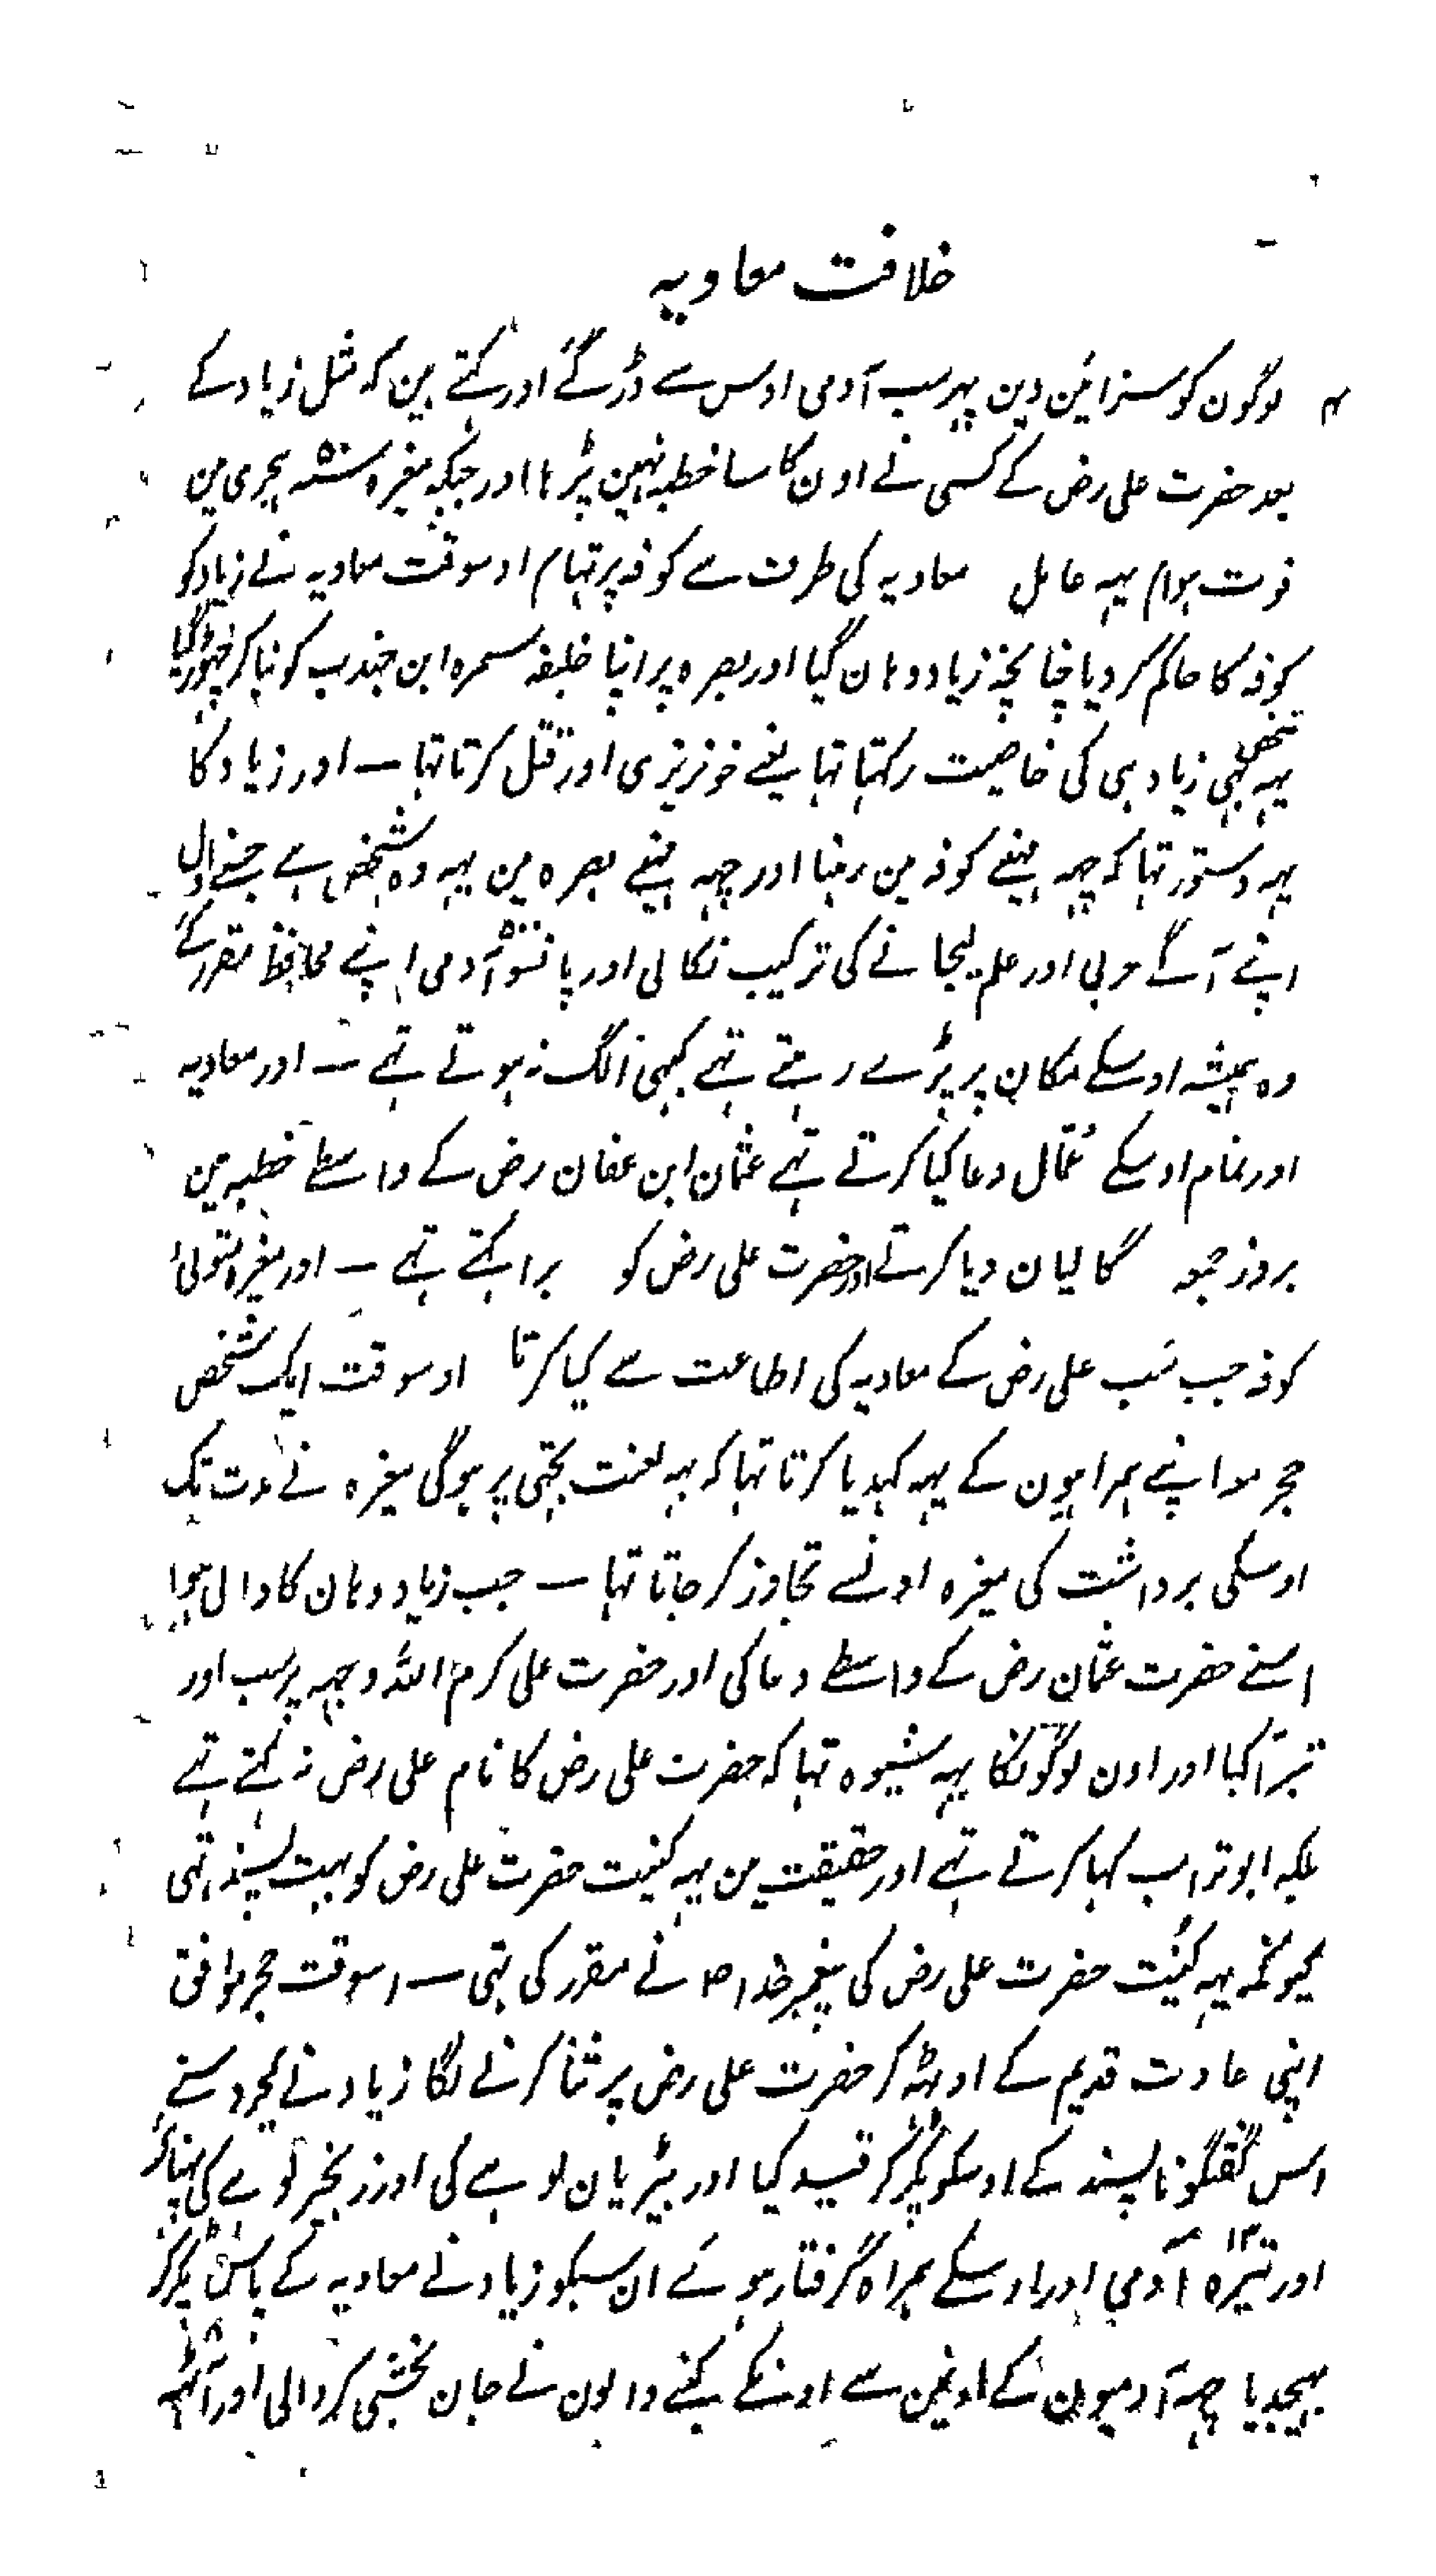 خلافت معاویہ
لوگون کو سزائین دین پہر سب آدمی اوس سے ڈر گئے اور کہتے ہین کہ مثل زیاد کے
بعد حضرت علی رض کے کسی نے اون کا سا خطبہ نہین پڑہا اور جبکہ مغیرہ سنہ ۵۰ ہجری مین
فوت ہوا یہہ عامل معاویہ کی طرف سے کوفہ پر تہا اوسوقت معاویہ نے زیاد کو
کوفہ کا حاکم کر دیا چنانچہ زیاد وہان گیا اور بصرہ پر اپنا خلیفہ سمرہ ابن جندب کو بنا کر چہوڑ گیا
یہہ شخص بہی زیاد ہی کی خاصیت رکہتا تہا یعنے خونریزی اور قتل کرتا تہا ـ اور زیاد کا
یہہ دستور تہا کہ چہہ مہینے کوفہ مین رہنا اور چہہ مہینے بصرہ مین یہہ وہ شخص ہے جسنے اول
اپنے آگے حربی اور علم لیجانے کی ترکیب نکالی اور پانسو ۵۰۰ آدمی اپنے محافظ مقرر کئے
وہ ہمیشہ اوسکے مکان پر پڑے رہتے تہے کبہی الگ نہ ہوتے تہے ـ اور معاویہ
اور تمام اوسکے عُمّال دعا کیا کرتے تہے عثمان ابن عفان رض کے واسطے خطبہ مین
بروز جمعہ گالیان دیا کرتے اور حضرت علی رض کو برا کہتے تہے ـ اور مغیرہ متولئ
کوفہ جب سَب علی رض کے معاویہ کی اطاعت سے کیا کرتا اوسوقت ایک شخص
حجر معہ اپنے ہمراہیون کے یہہ کہدیا کرتا تہا کہ یہہ لعنت تجہی پر ہوگی مغیرہ نے مدت تک
اوسکی برداشت کی مغیرہ اونسے تجاوز کر جاتا تہا ـ جب زیاد وہان کا والی ہوا
اسنے حضرت عثمان رض کے واسطے دعا کی اور حضرت علی کرم اللہ وجہہ پر سب اور
تبرّا کہا اور اون لوگونکا یہہ شیوہ تہا کہ حضرت علی رض کا نام علی رض نہ کہتے تہے
بلکہ ابوتراب کہا کرتے تہے اور حقیقت مین یہہ کنیت حضرت علی رض کو بہت پسند تہی
کیونکہ یہہ کنیت حضرت علی رض کی پیغمبر خدا ص نے مقرر کی تہی ـ اسوقت حجر موافق
اپنی عادت قدیم کے اوٹہہ کر حضرت علی رض پر ثنا کرنے لگا زیاد نے بمجرد سننے
اس گفتگو ناپسند کے اوسکو پکڑ کر قید کیا اور بیڑیان لوہے کی اور زنجیر لوہے کی پہنا کر
اور تیرہ ۱۳ آدمی اور اوسکے ہمراہ گرفتار ہوئے ان سبکو زیاد نے معاویہ کے پاس پکڑ کر
بہیجدیا چہہ آدمیون کے اونمین سے اونکے کنبے والون نے جان بخشی کروالی اور آٹہہ ۸